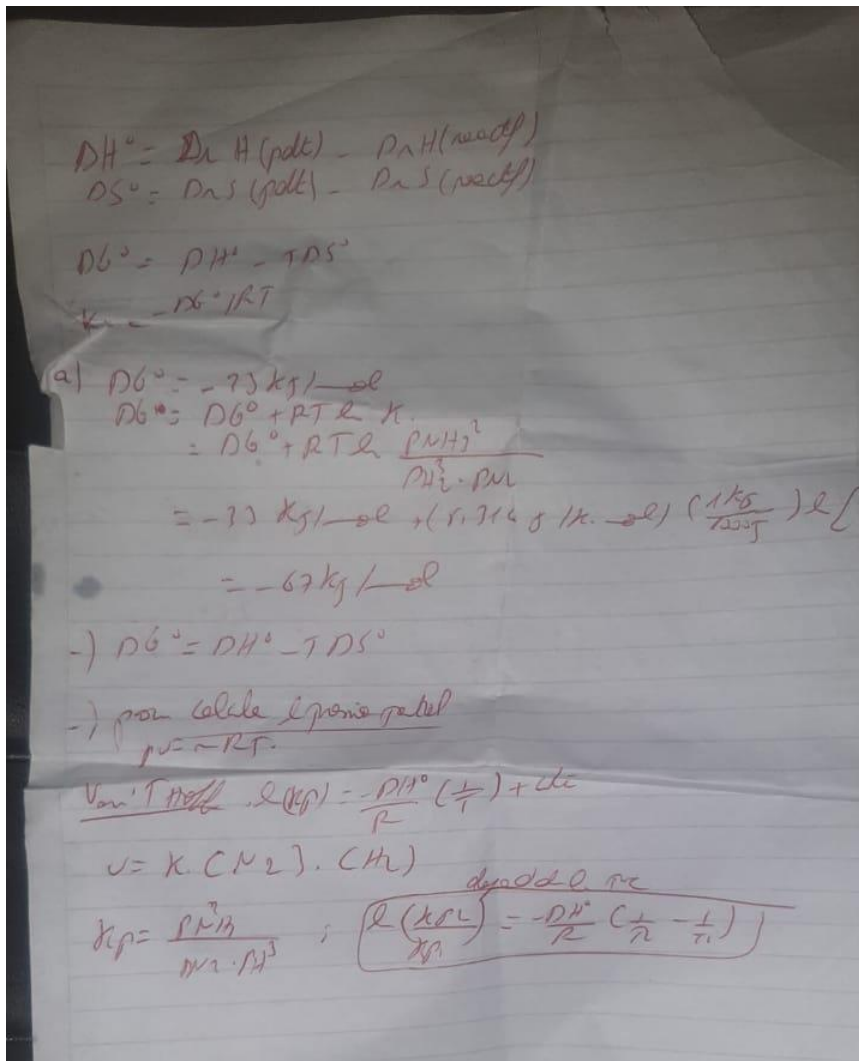 DH° = Dr H (pdt) - DrH (reactf)
DS° = DrS (pdt) - DrS (reactf)
DG° = DH° - TDS°
-DG°/RT
a) DG° = -33 kJ/mol
DG = DG° + RT ln K.
= DG° + RT ln PNH3² / PH2³ . PN2
= -33 kJ/mol + (8,314 J/K.mol) (1kJ/1000J) ln [
= -67 kJ/mol
-) DG° = DH° - TDS°
-) pour calculer
PV = nRT.
Van'T Hoff ln(Kp) = -DH°/R (1/T) + cte
V = K. (N2). (H2)
Kp = PNH3² / PN2 . PH³ ; ln (Kp2/Kp1) = -DH°/R (1/T2 - 1/T1)